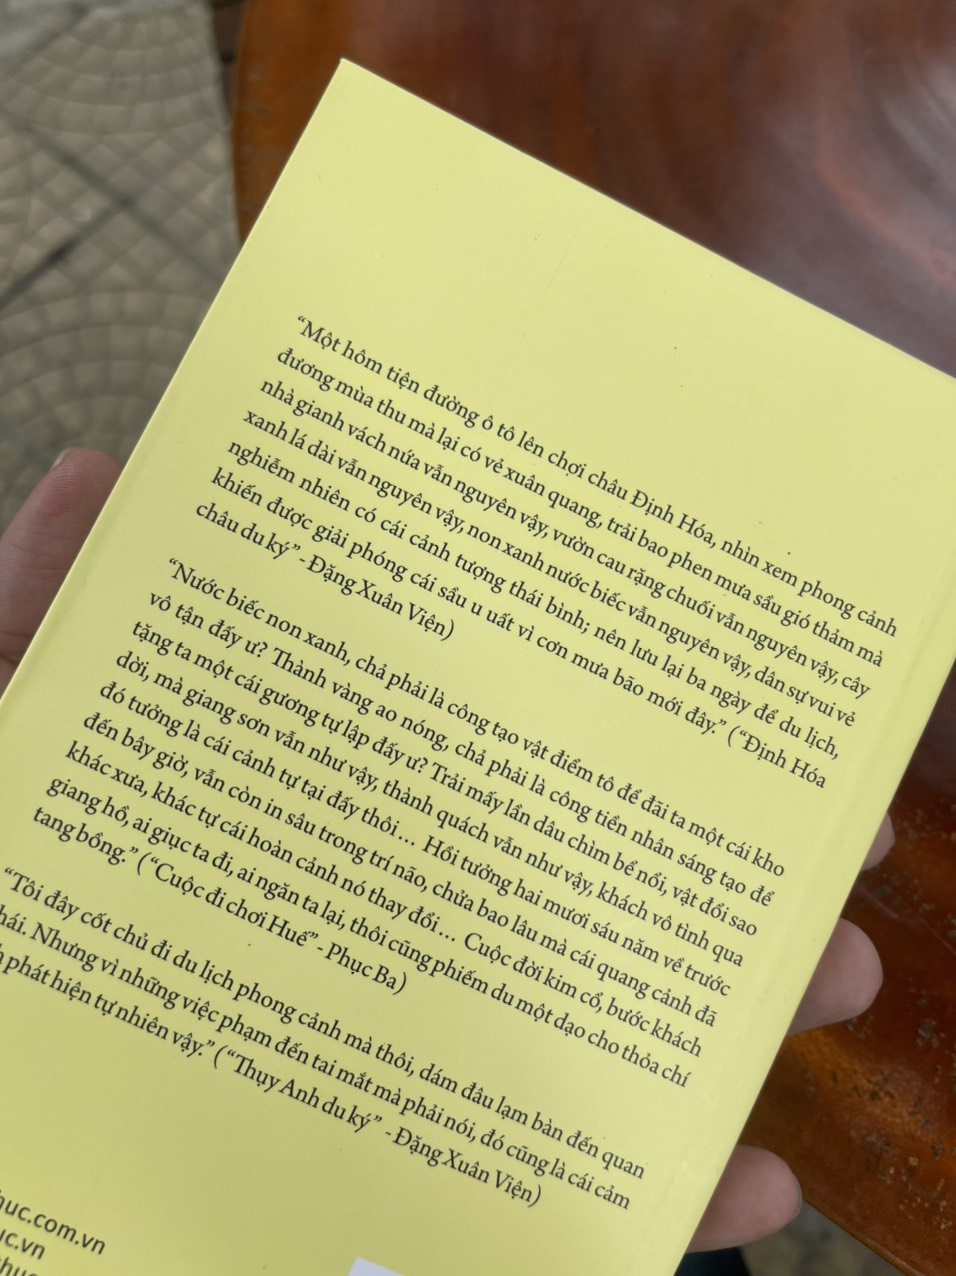 “Một hôm tiện đường ô tô lên chợi châu Định Hóa, nhìn xem phong cảnh
đương mùa thu mà lại có vẻ xuân quang, trải bao phen mưa sầu gió thảm mà
nhà gianh vách nứa vẫn nguyên vậy, vườn cau rặng chuối vẫn nguyên vậy, cây
xanh lá dài vẫn nguyên vậy, non xanh nước biếc vẫn nguyên vậy, dân sự vui vẻ
nghiễm nhiên có cái cảnh tượng thái bình; nên lưu lại ba ngày để du lịch,
khiến được giải phóng cái sầu u uất vì cơn mưa bão mới đây.” (“Định Hóa
châu du ký” - Đặng Xuân Viện)
“Nước biếc non xanh, chả phải là công tạo vật điểm tô để đãi ta một cái kho
vô tận đấy ư? Thành vàng ao nóng, chả phải là công tiền nhân sáng tạo để
tặng ta một cái gương tự lập đấy ư? Trải mấy lần dâu chìm bể nổi, vật đổi sao
dời, mà giang sơn vẫn như vậy, thành quách vẫn như vậy, khách vô tình qua
đó tưởng là cái cảnh tự tại đấy thôi… Hồi tưởng hai mươi sáu năm về trước
đến bây giờ, vẫn còn in sâu trong trí não, chửa bao lâu mà cái quang cảnh đã
khác xưa, khác tự cái hoàn cảnh nó thay đổi… Cuộc đời kim cổ, bước khách
giang hồ, ai giục ta đi, ai ngăn ta lại, thôi cũng phiếm du một dạo cho thỏa chí
tang bồng.” (“Cuộc đi chơi Huế” - Phục Ba)
“Tôi đây cốt chủ đi du lịch phong cảnh mà thôi, dám đâu lạm bàn đến quan
hái. Nhưng vì những việc phạm đến tai mắt mà phải nói, đó cũng là cái cảm
phát hiện tự nhiên vậy.” (“Thụy Anh du ký” - Đặng Xuân Viện)
huc.com.vn
uc.vn